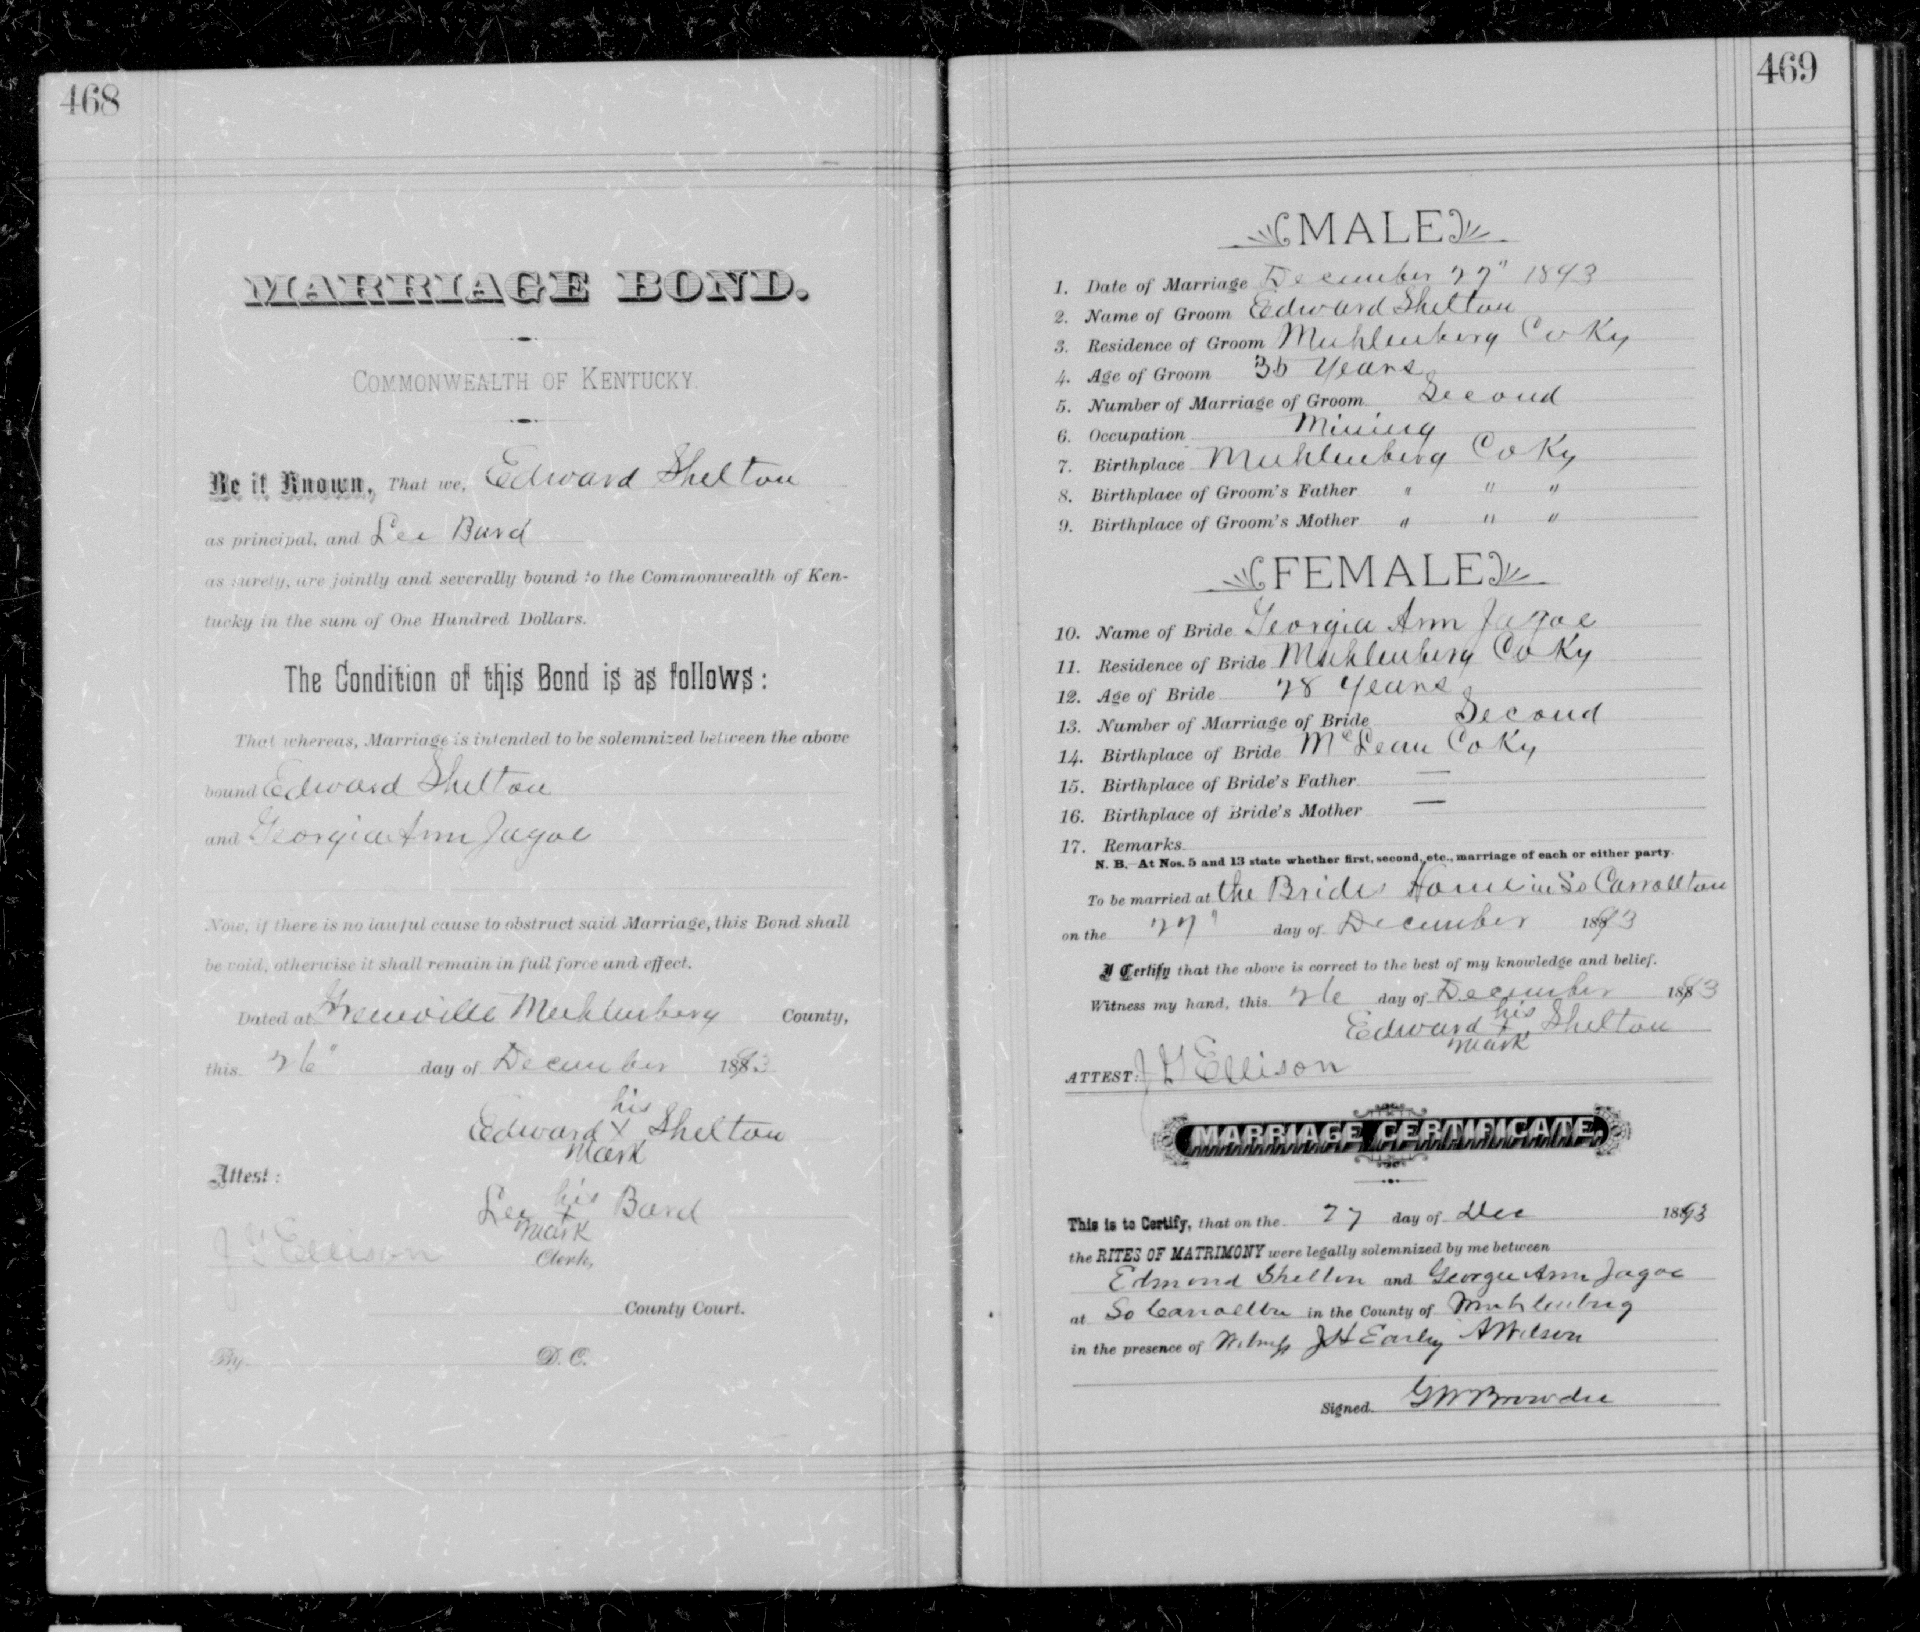 468
MARRIAGE BOND.
COMMONWEALTH OF KENTUCKY.
Be it Known, That we, Edward Shelton
as principal, and Lee Bard
as surety, are jointly and severally bound to the Commonwealth of Ken-
tucky in the sum of One Hundred Dollars.
The Condition of this Bond is as follows:
That whereas, Marriage is intended to be solemnized between the above
bound Edward Shelton
and Georgia Ann Jagoe
Now, if there is no lawful cause to obstruct said Marriage, this Bond shall
be void, otherwise it shall remain in full force and effect.
Dated at Greenville Muhlenberg County,
this 26" day of December 1893
his
Edward X Shelton
mark
Attest:
his
Lee X Bard
mark
J Ellison
Clerk,
County Court.
By D. C.
469
MALE
1. Date of Marriage December 27" 1893
2. Name of Groom Edward Shelton
3. Residence of Groom Muhlenberg Co Ky
4. Age of Groom 35 Years
5. Number of Marriage of Groom Second
6. Occupation Mining
7. Birthplace Muhlenberg Co Ky
8. Birthplace of Groom's Father " " "
9. Birthplace of Groom's Mother " " "
FEMALE
10. Name of Bride Georgia Ann Jagoe
11. Residence of Bride Muhlenberg Co Ky
12. Age of Bride 28 Years
13. Number of Marriage of Bride Second
14. Birthplace of Bride McLean Co Ky
15. Birthplace of Bride's Father —
16. Birthplace of Bride's Mother —
17. Remarks
N. B.—At Nos. 5 and 13 state whether first, second, etc., marriage of each or either party.
To be married at the Brides Home in So Carrollton
on the 27" day of December 1893
I Certify that the above is correct to the best of my knowledge and belief.
Witness my hand, this 26 day of December 1893
his
Edward X Shelton
mark
ATTEST: J Ellison
MARRIAGE CERTIFICATE.
This is to Certify, that on the 27 day of Dec 1893
the RITES OF MATRIMONY were legally solemnized by me between
Edmond Shelton and Georgie Ann Jagoe
at So Carrollton in the County of Muhlenburg
in the presence of Witness J H Early A Wilson
Signed. G W Browder